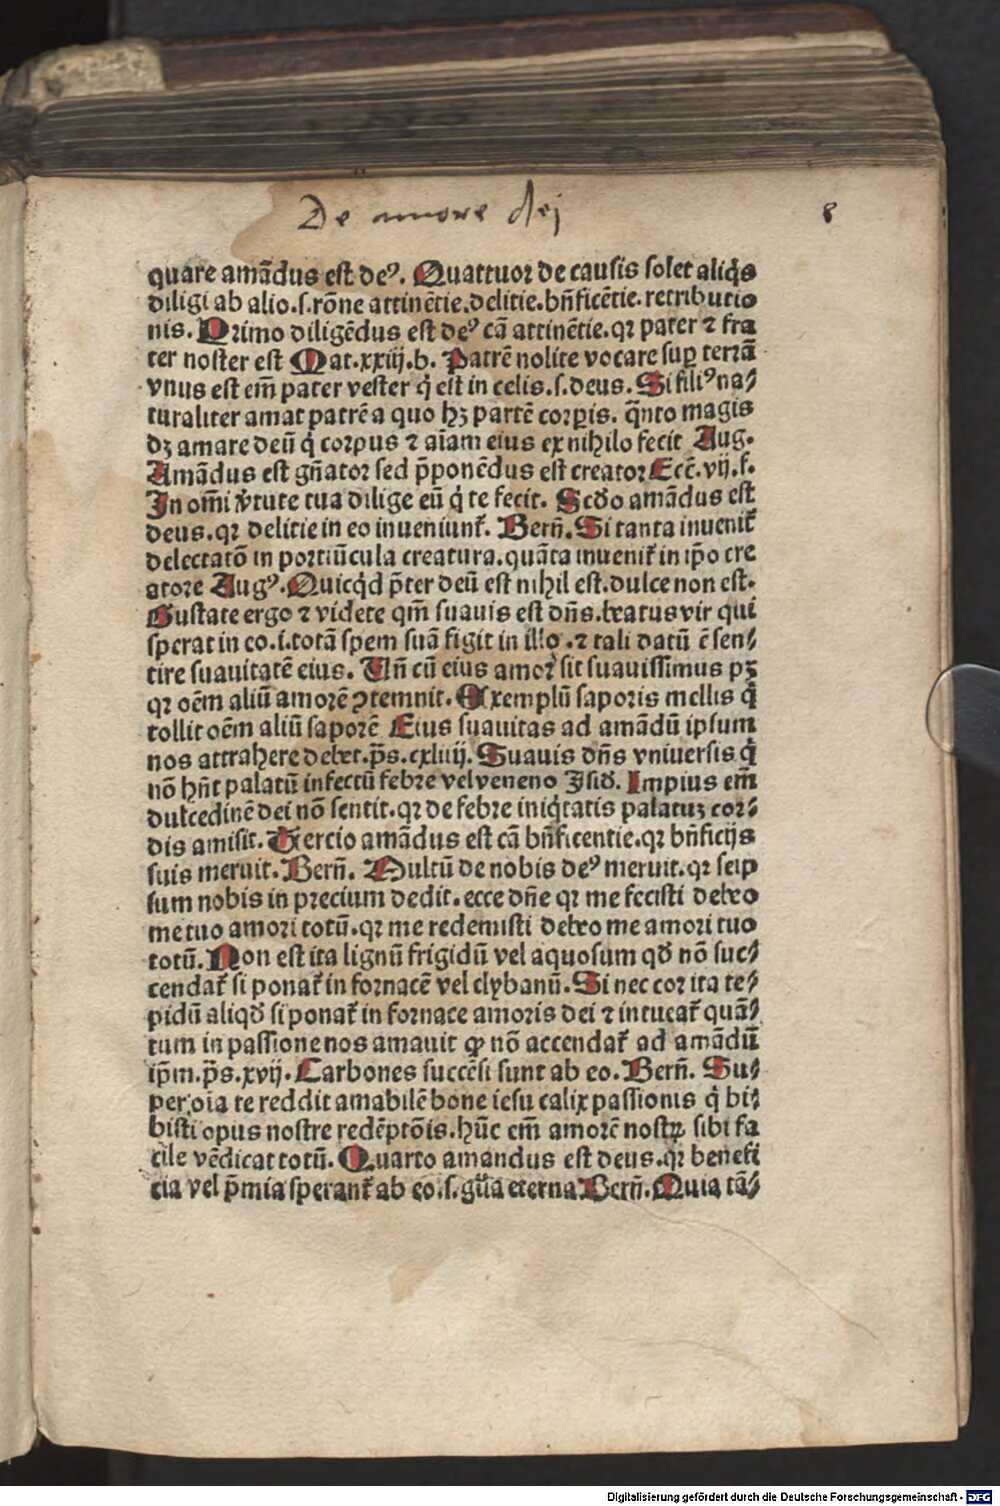 De amore dej
8
quare amādus est deꝰ. Quattuor de causis solet aliq̇s
diligi ab alio.s.rōne attinētie.delitie.bn̄ficētie.retributio
nis. Primo diligēdus est deꝰ cā attinētie.qꝛ pater ⁊ fra
ter noster est Mat.xxiij.b. Patrē nolite vocare suꝑ terrā
vnus est em̄ pater vester q̇ est in celis.s.deus. Si filiꝰ na⸗
turaliter amat patrē a quo hꝫ partē corꝑis. q̄nto magis
dꝫ amare deū q̇ corpus ⁊ aīam eius ex nihilo fecit Aug.
Amādus est gn̄ator sed p̄ponēdus est creator Eccͨ.vij.f.
In om̄i v̓tute tua dilige eū q̇ te fecit. Scd̓o amādus est
deus.qꝛ delitie in eo inueniunt᷑. Bern̄. Si tanta inuenit᷑
delectatō in portiūcula creatura.quāta inuenit᷑ in ip̄o cre
atore Augꝰ. Quicq̇d p̄ter deū est nihil est.dulce non est.
Gustate ergo ⁊ videte qm̄ suauis est dn̄s.beatus vir qui
sperat in eo.i.totā spem suā figit in illo.⁊ tali datū ē sen⸗
tire suauitatē eius. Un̄ cū eius amor sit suauissimus pꝫ
qꝛ oēm aliū amorē ꝯtemnit. Exemplū saporis mellis q̇
tollit oēm aliū saporē Eius suauitas ad amādū ipsum
nos attrahere debet.p̄s.cxliiij. Suauis dn̄s vniuersis q̇
nō hn̄t palatū infectū febre vel veneno Isid̓. Impius em̄
dulcedinē dei nō sentit.qꝛ de febre iniq̇tatis palatuꝫ cor⸗
dis amisit. Tercio amādus est cā bn̄ficentie.qꝛ bn̄ficijs
suis meruit. Bern̄. Multū de nobis deꝰ meruit.qꝛ seip
sum nobis in precium dedit.ecce dn̄e qꝛ me fecisti debeo
me tuo amori totū.qꝛ me redemisti debeo me amori tuo
totū. Non est ita lignū frigidū vel aquosum qd̓ nō suc⸗
cendat᷑ si ponat᷑ in fornacē vel clybanū. Si nec cor ita te⸗
pidū aliqd̓ si ponat᷑ in fornace amoris dei ⁊ intueat᷑ quā⸗
tum in passione nos amauit ꝙ nō accendat᷑ ad amādū
ip̄m.p̄s.xvij. Carbones succēsi sunt ab eo. Bern̄. Su⸗
per oīa te reddit amabilē bone iesu calix passionis q̇ bi⸗
bisti opus nostre redēptōis.hūc em̄ amorē nostꝝ sibi fa
cile vēdicat totū. Quarto amandus est deus.qꝛ benefi
cia vel p̄mia sperant᷑ ab eo.s.gl̓ia eterna Bern̄. Quia tā⸗
Digitalisierung gefördert durch die Deutsche Forschungsgemeinschaft - DFG